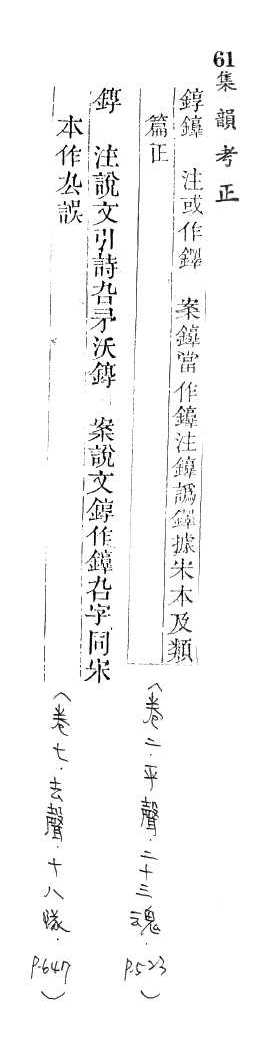 61 集韻考正
錞 注或作 案 當作 注 譌 據宋本及類
篇正
(卷二·平聲·二十三魂·P.523)
錞 注說文引詩叴矛沃錞 案說文錞作 叴字同宋
本作厹誤
(卷七·去聲·十八隊·P.647)